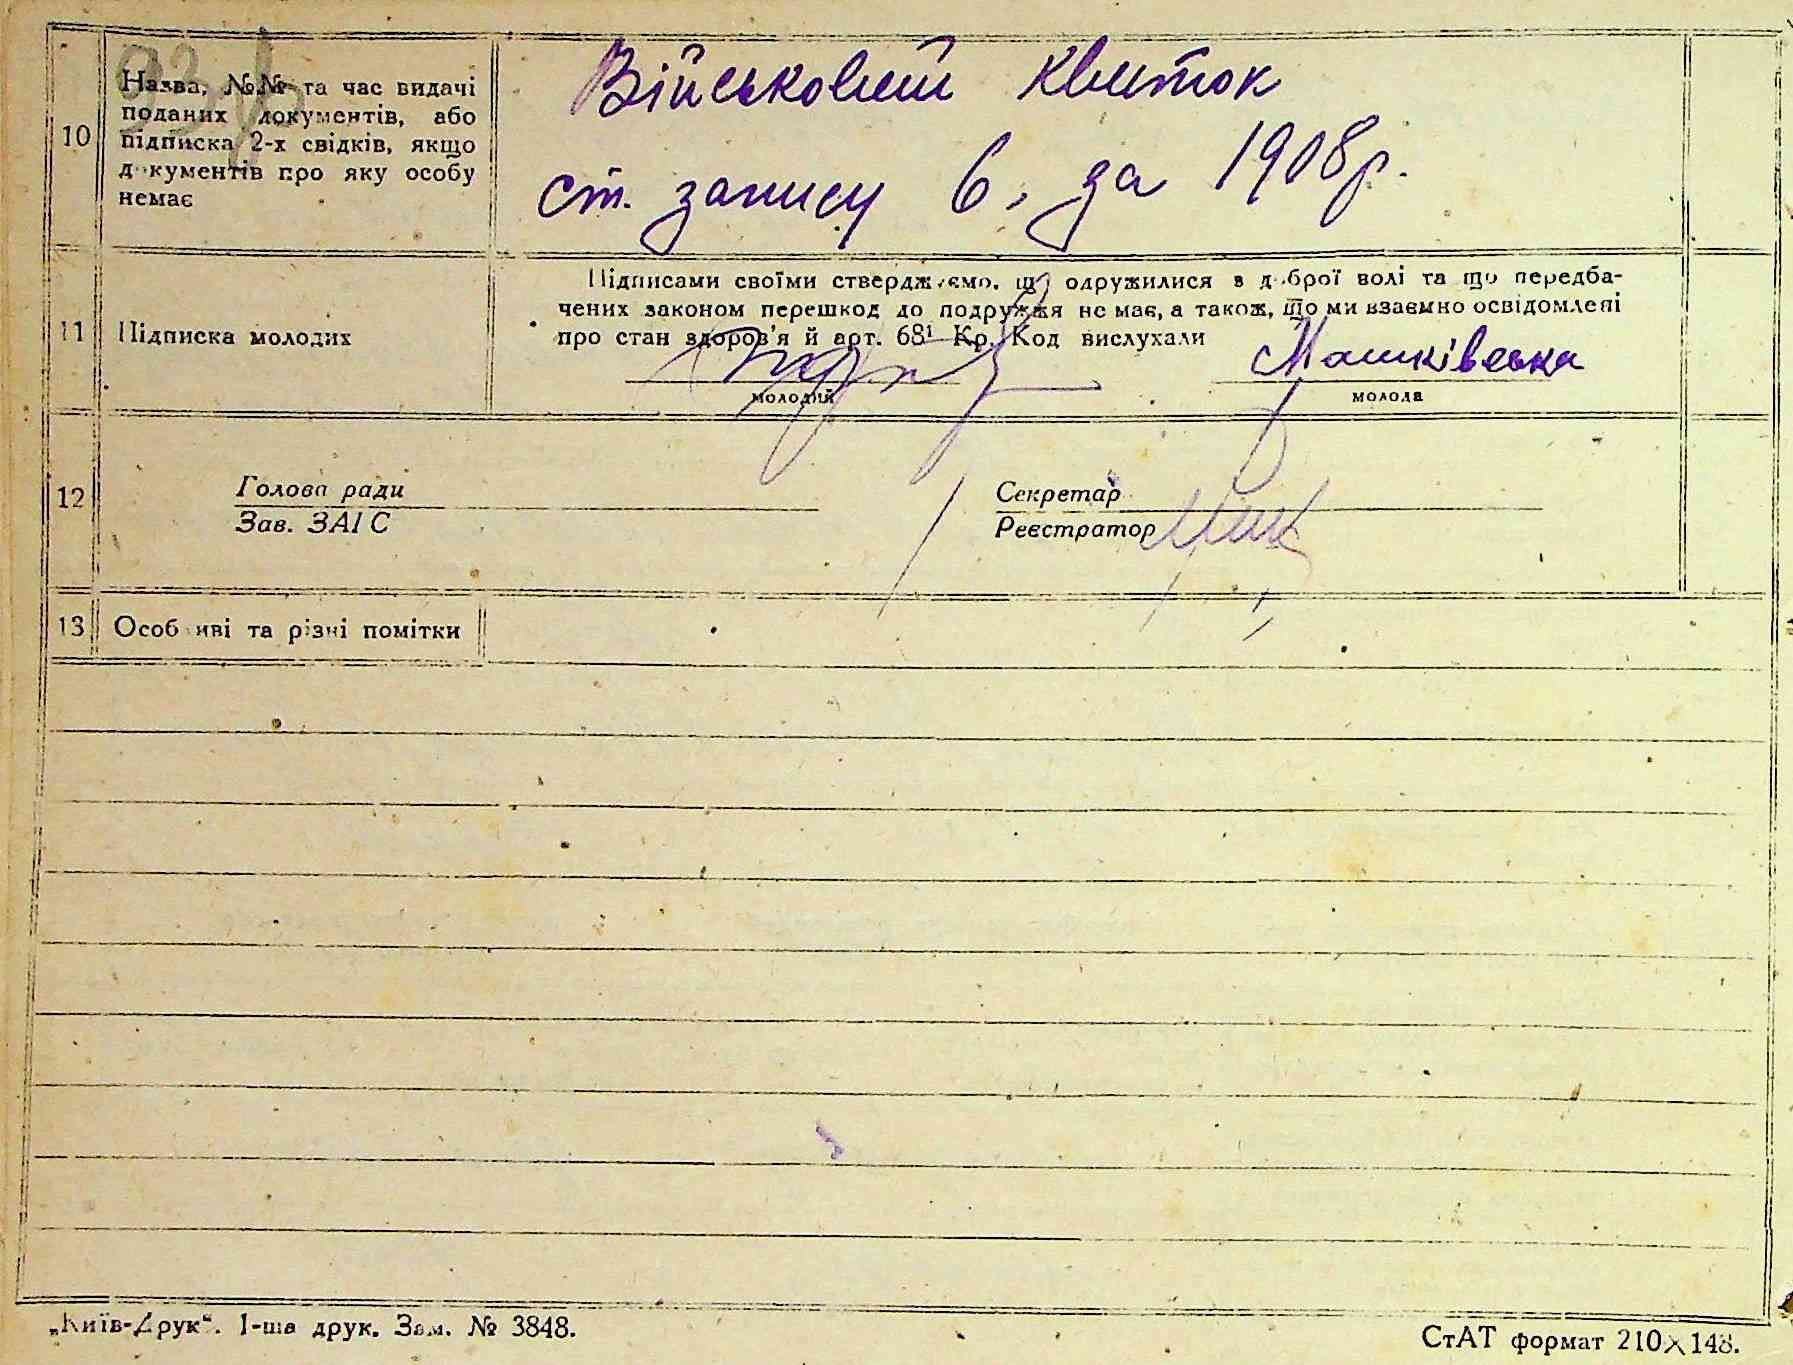 10
Назва, №№ та час видачі
поданих документів, або
підписка 2-х свідків, якщо
документів про яку особу
немає
Військовий квиток
ст. запису 6, за 1908р.
11
Підписка молодих
Підписами своїми стверджуємо, що одружилися з доброї волі та що передба-
чених законом перешкод до подружжя не має, а також, що ми взаємно освідомлені
про стан здоров'я й арт. 68¹ Кр. Код вислухали
Машківська
молодий
молода
12
Голова ради
Зав. ЗАІС
Секретар
Реєстратор
13
Особливі та різні помітки
„Київ-Друк“. 1-ша друк. Зам. № 3848.
СтАТ формат 210×148.